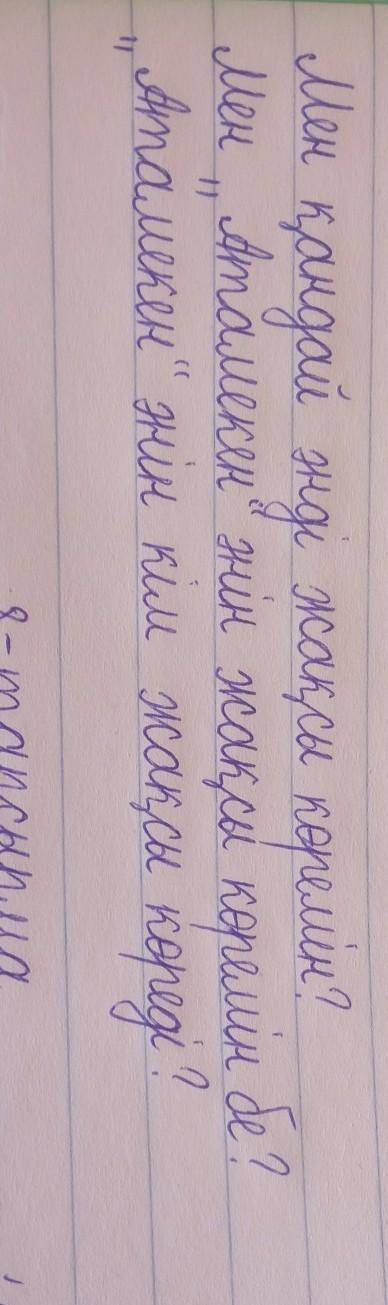 Мен қандай әнді жақсы көремін?
Мен „Атамекен“ әнін жақсы көремін бе?
„Атамекен“ әнін кім жақсы көреді?
8-тапсырма